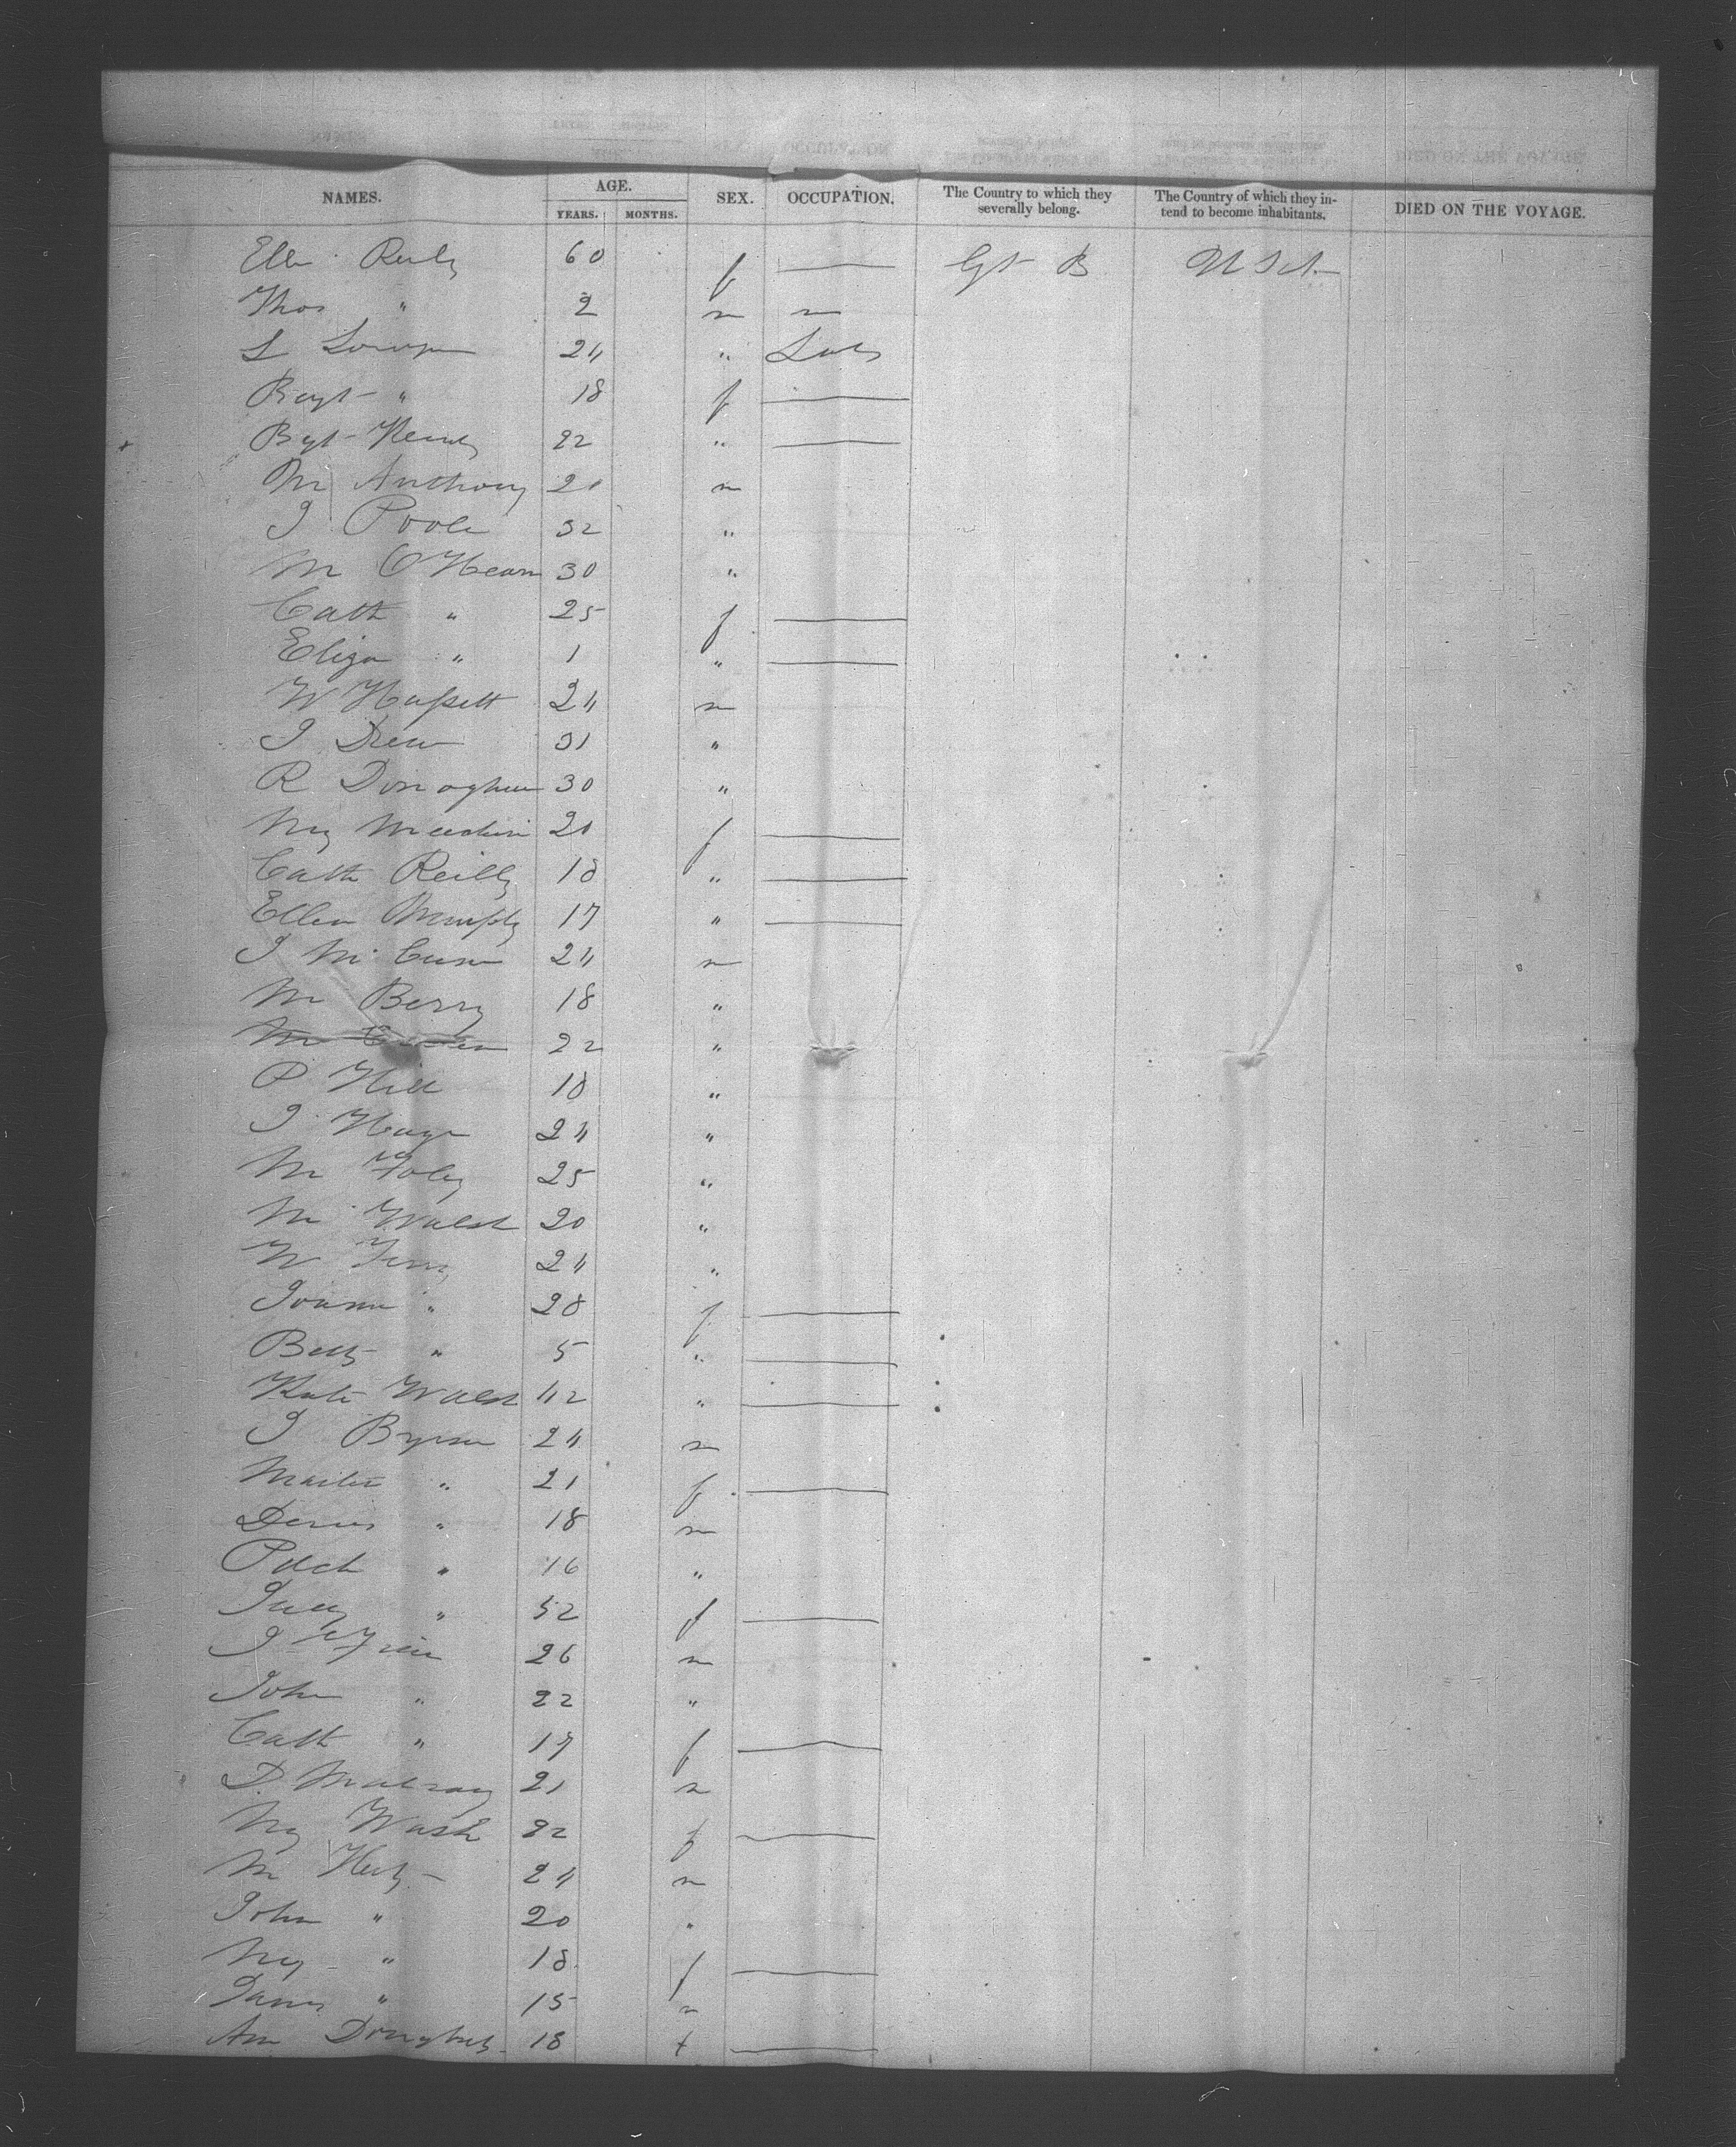 NAMES. AGE. SEX. OCCUPATION. The Country to which they severally belong. The Country of which they intend to become inhabitants. DIED ON THE VOYAGE.
YEARS. MONTHS.
Ellen 60 f — Gt B U St
Thos " 2 m
L 24 " Lab
Bgt " 18 f —
Bgt 22 " —
M Anthony 21 m
J Poole 32 "
M O'Hearn 30 "
Cath " 25 f —
Eliza " 1 " —
W Hassett 24 m
J Drew 31 "
R Donaghue 30 "
My 21 f —
Cath Reilly 18 " —
Ellen Murphy 17 " —
J 24 m
M Berry 18 "
M 22 "
P Hill 18 "
J 24 "
M Foley 25 "
M Walsh 20 "
W 24 "
Joanna " 28 f —
Betty " 5 " —
Kate Walsh 42 " —
J Byrne 24 m
" 21 f —
Denis " 18 m
Patck " 16 "
" 52 f —
J 26 m
John " 22 "
Cath " 17 f —
D Mulroy 21 m
My 22 f —
M 24 m
John " 20 "
My " 18 f —
James " 15 m
Ann 18 f —